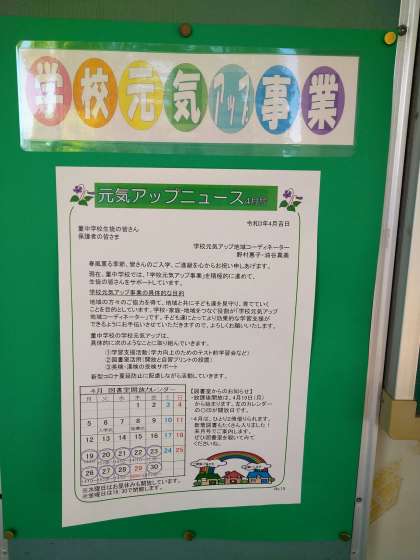 学校元気アップ事業
元気アップニュース 4月号
令和3年4月吉日
童中学校生徒の皆さん
保護者の皆さま
学校元気アップ地域コーディネーター
春風薫る季節、皆さんのご入学、ご進級を心からお祝い申しあげます。
現在、童中学校では、「学校元気アップ事業」を積極的に進めて、
生徒の皆さんをサポートしています。
学校元気アップ事業の具体的な目的
地域の方々のご協力を得て、地域と共に子ども達を見守り、育てていく
ことを目的としています。学校・家庭・地域をつなぐ役割が「学校元気アップ
地域コーディネーター」です。子ども達にとってより効果的な学習支援が
できるようにお手伝いさせていただきますので、よろしくお願いいたします。
童中学校の学校元気アップは、
具体的に次のようなことに取り組んでいきます。
①学習支援活動(学力向上のためのテスト前学習会など)
②図書室活用(開放と自習プリントの設置)
③英検・漢検の受検サポート
新型コロナ蔓延防止に配慮しながら活動していきます。
4月 図書室開放カレンダー
月 火 水 木 金 土 日
1 2 3 4
5 6 7 8 9 10 11
12 13 14 15 16 17 18
19 20 21 22 23 24 25
26 27 28 29 30
※水曜日はお昼休みも開放しています。
【図書室からのお知らせ】
・放課後開放は、4月19日(月)
から始まります。左のカレンダー
の〇印が開放日です。
・4月は、ひとり2冊借りられます。
新着図書もたくさん入りました!
来月号でご案内します。
ぜひ図書室を覗いてみて
くださいね。